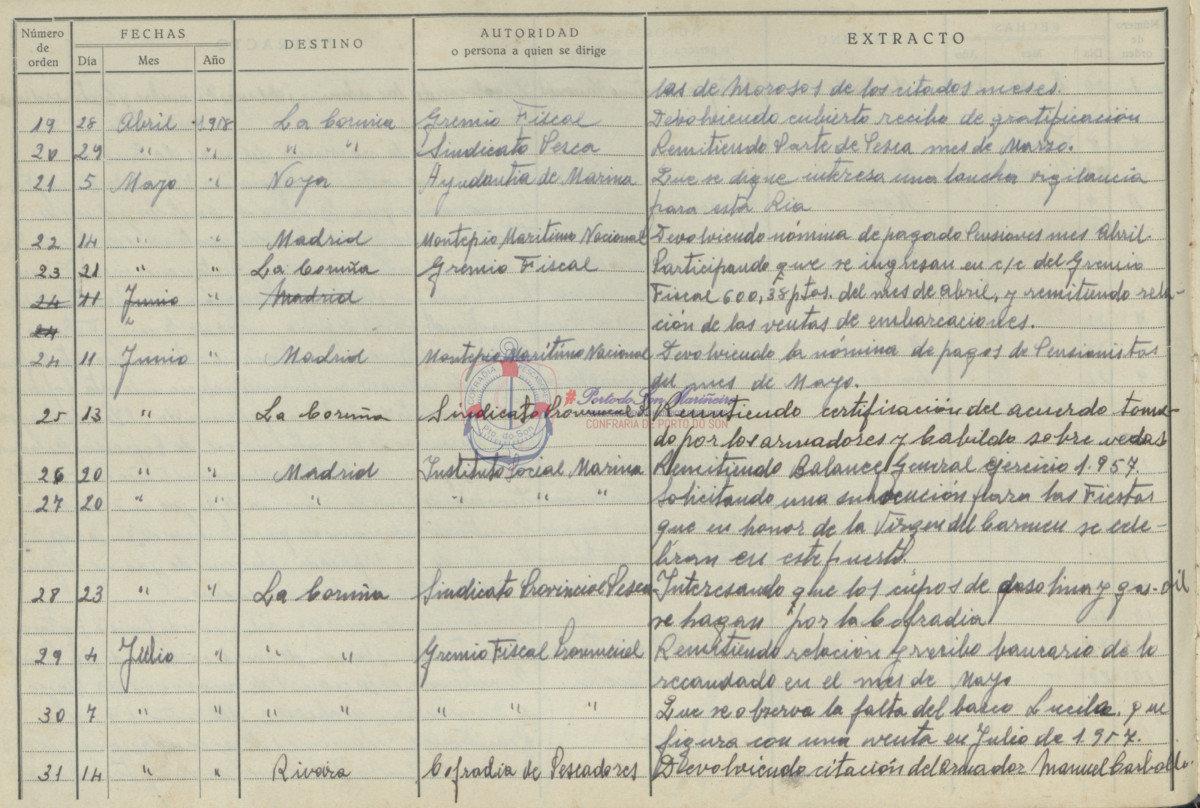 Número de orden FECHAS DESTINO AUTORIDAD EXTRACTO
Día Mes Año o persona a quien se dirige
las de Morosos de los citados meses.
19 28 Abril 1.958 La Coruña Gremio Fiscal Devolviendo cubierto recibo de gratificación
20 29 " " " " Sindicato Pesca Remitiendo Parte de Pesca mes de Marzo.
21 5 Mayo " Noya Ayudantia de Marina Que se digue interesa una lancha vigilancia
para esta Ria
22 14 " " Madrid Montepio Maritimo Nacional Devolviendo nómina de pago do Pensiones mes Abril.
23 21 " " La Coruña Gremio Fiscal Participando que se ingresan en c/c del Gremio
24 11 Junio " Madrid Fiscal 600,38 ptas. del mes de abril, y remitiendo rela-
24 " ción de las ventas de embarcaciones.
24 11 Junio " Madrid Montepio Marítimo Nacional Devolviendo la nómina de pagos de Pensionistas
del mes de Mayo.
25 13 " " La Coruña Sindicato Provincial P. Remitiendo certificación del acuerdo toma-
do por los armadores y Cabildo sobre vedas
26 20 " " Madrid Instituto Social Marina Remitiendo Balance General ejercicio 1.957.
27 20 " " " " " " Solicitando una subvención para las Fiestas
que en honor de la Virgen del Carmen se cele-
bran en este puerto.
28 23 " " La Coruña Sindicato Provincial Pesca Interesando que los cupos de gasolina y gas-oil
se hagan por la Cofradia
29 4 Julio " " " Gremio Fiscal Provincial Remitiendo relación y recibo bancario de lo
recaudado en el mes de Mayo
30 7 " " " " " " " Que se observa la falta del barco Lucila. que
figura con una venta en Julio de 1.957.
31 14 " " Riveira Cofradia de Pescadores Devolviendo citación del armador Manuel Carballo.
COFRADIA PESCADORES
Pto. do Son
# Porto do Son Mariñeiro
CONFRARIA DE PORTO DO SON